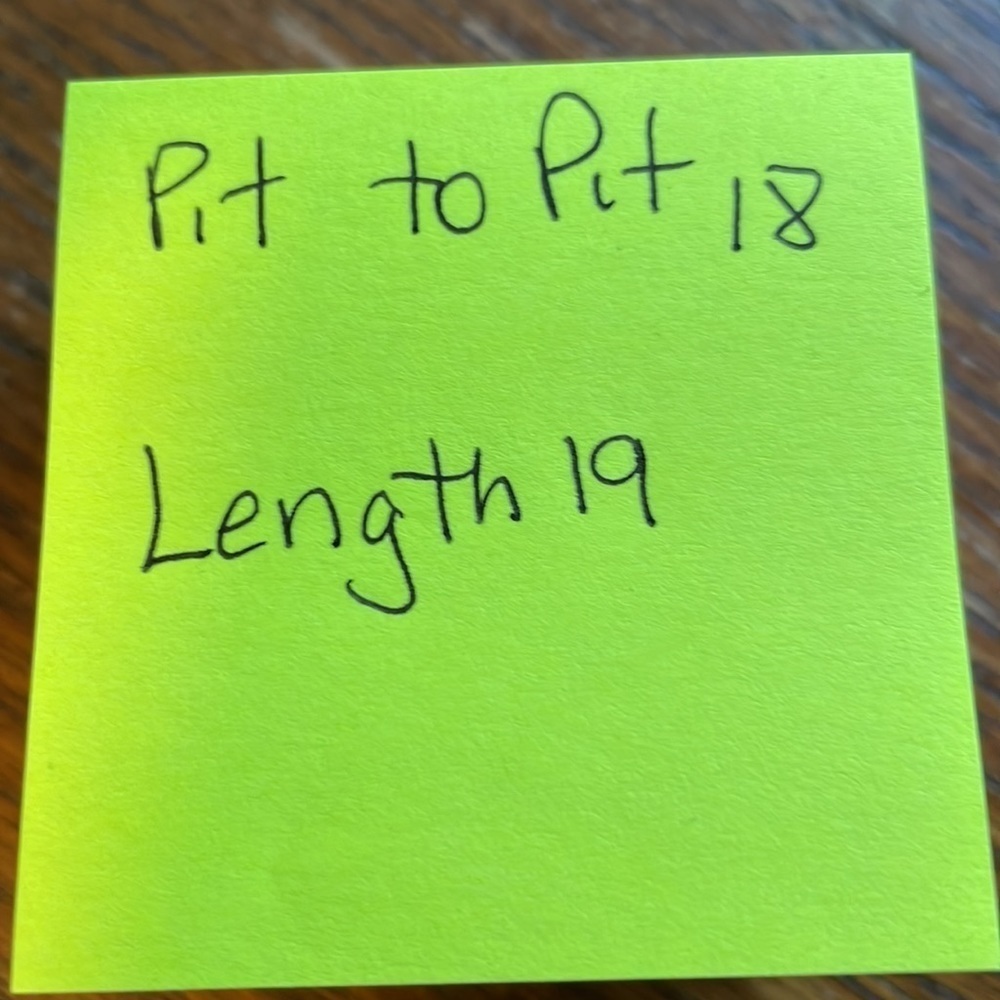 Pit to Pit 18
Length 19